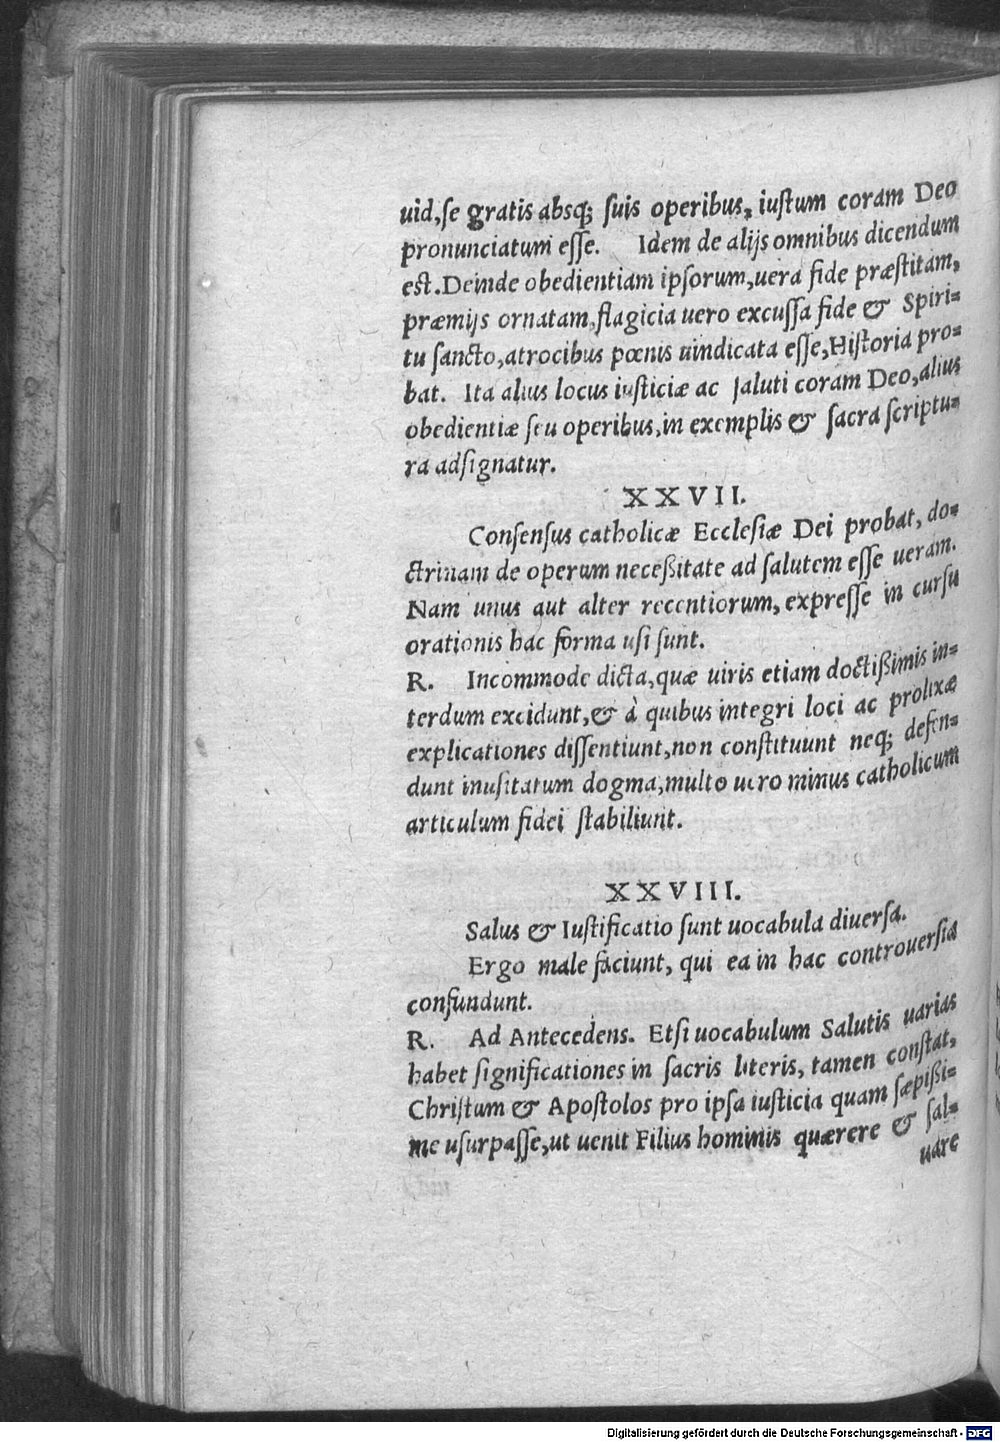 uid,ſe gratis absq; ſuis operibus, iuſtum coram Deo
pronunciatum eſſe. Idem de alijs omnibus dicendum
eſt. Deinde obedientiam ipſorum, uera fide præſtitam,
præmijs ornatam, flagicia uero excuſſa fide & Spiri-
tu ſancto, atrocibus pœnis uindicata eſſe, Hiſtoria pro-
bat. Ita alius locus iuſticiæ ac ſaluti coram Deo, alius
obedientiæ ſeu operibus, in exemplis & ſacra ſcriptu-
ra adſignatur.
XXVII.
Conſenſus catholicæ Eccleſiæ Dei probat, do-
ctrinam de operum neceßitate ad ſalutem eſſe ueram.
Nam unus aut alter recentiorum, expreſſe in curſu
orationis hac forma uſi ſunt.
R. Incommode dicta, quæ uiris etiam doctißimis in-
terdum excidunt, & à quibus integri loci ac prolixæ
explicationes diſſentiunt, non conſtituunt neq; defen-
dunt inuſitatum dogma, multo uero minus catholicum
articulum fidei ſtabiliunt.
XXVIII.
Salus & Iuſtificatio ſunt uocabula diuerſa.
Ergo male faciunt, qui ea in hac controuerſia
confundunt.
R. Ad Antecedens. Etſi uocabulum Salutis uarias
habet ſignificationes in ſacris literis, tamen conſtat,
Chriſtum & Apoſtolos pro ipſa iuſticia quam ſæpißi-
me uſurpaſſe, ut uenit Filius hominis quærere & ſal-
uare
Digitalisierung gefördert durch die Deutsche Forschungsgemeinschaft - DFG